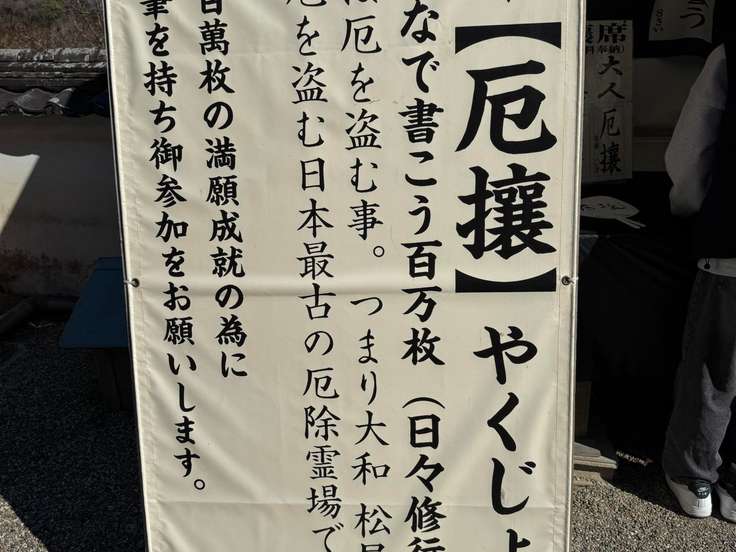 【厄攘】やくじょ
なで書こう百万枚（日々修行
は厄を盗む事。つまり大和 松尾
厄を盗む日本最古の厄除霊場で
百萬枚の満願成就の為に
筆を持ち御参加をお願いします。
席
奉納
大人厄攘